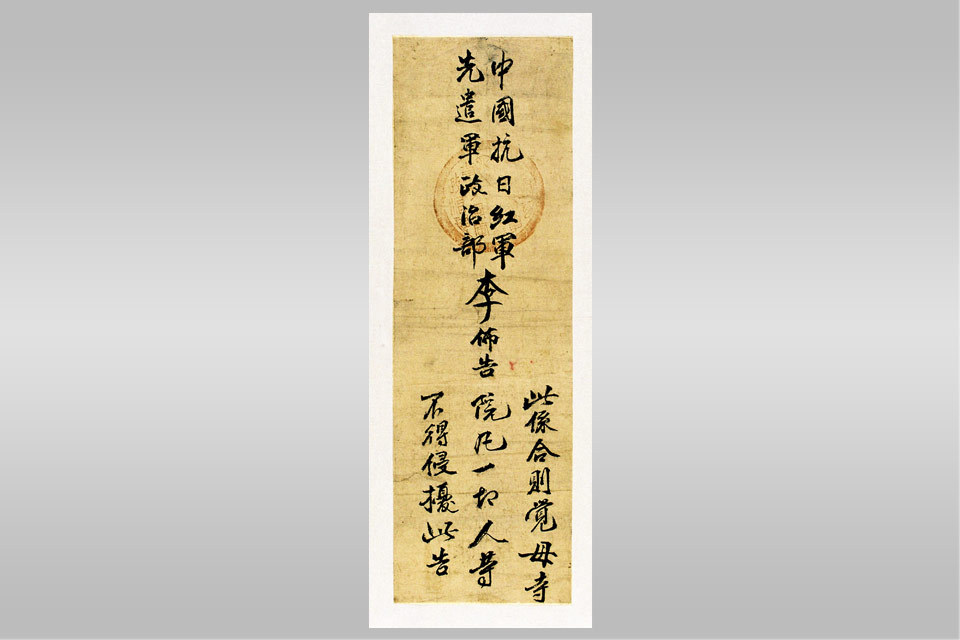 中國抗日紅軍
先遣軍政治部
李佈告
此係合則覺母寺
院凡一切人等
不得侵擾此告